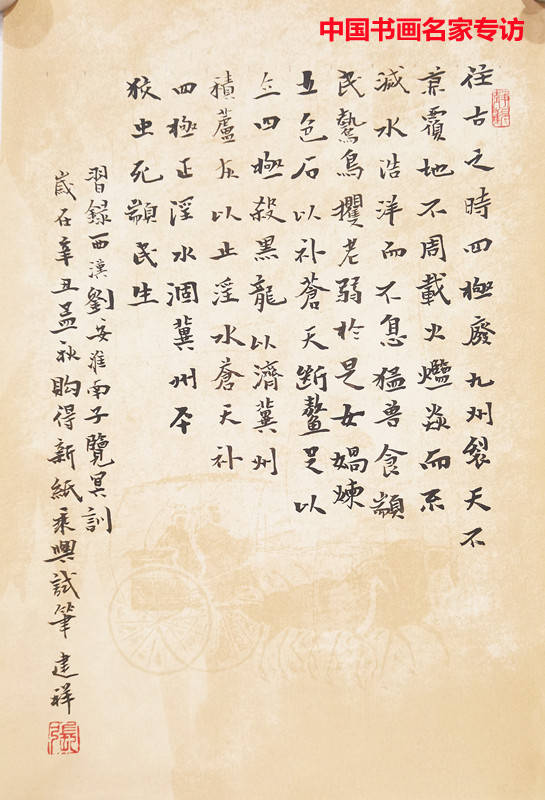 中国书画名家专访
往古之時四極廢九州裂天不
兼覆地不周載火爁焱而不
滅水浩洋而不息猛兽食顓
民鷙鳥攫老弱於是女媧煉
五色石以补蒼天断鳌足以
立四極殺黑龍以濟冀州
積蘆灰以止淫水蒼天补
四極正淫水涸冀州平
狡虫死顓民生
習録西漢劉安淮南子覽冥訓
歲在辛丑孟秋購得新紙乘興試筆 建祥